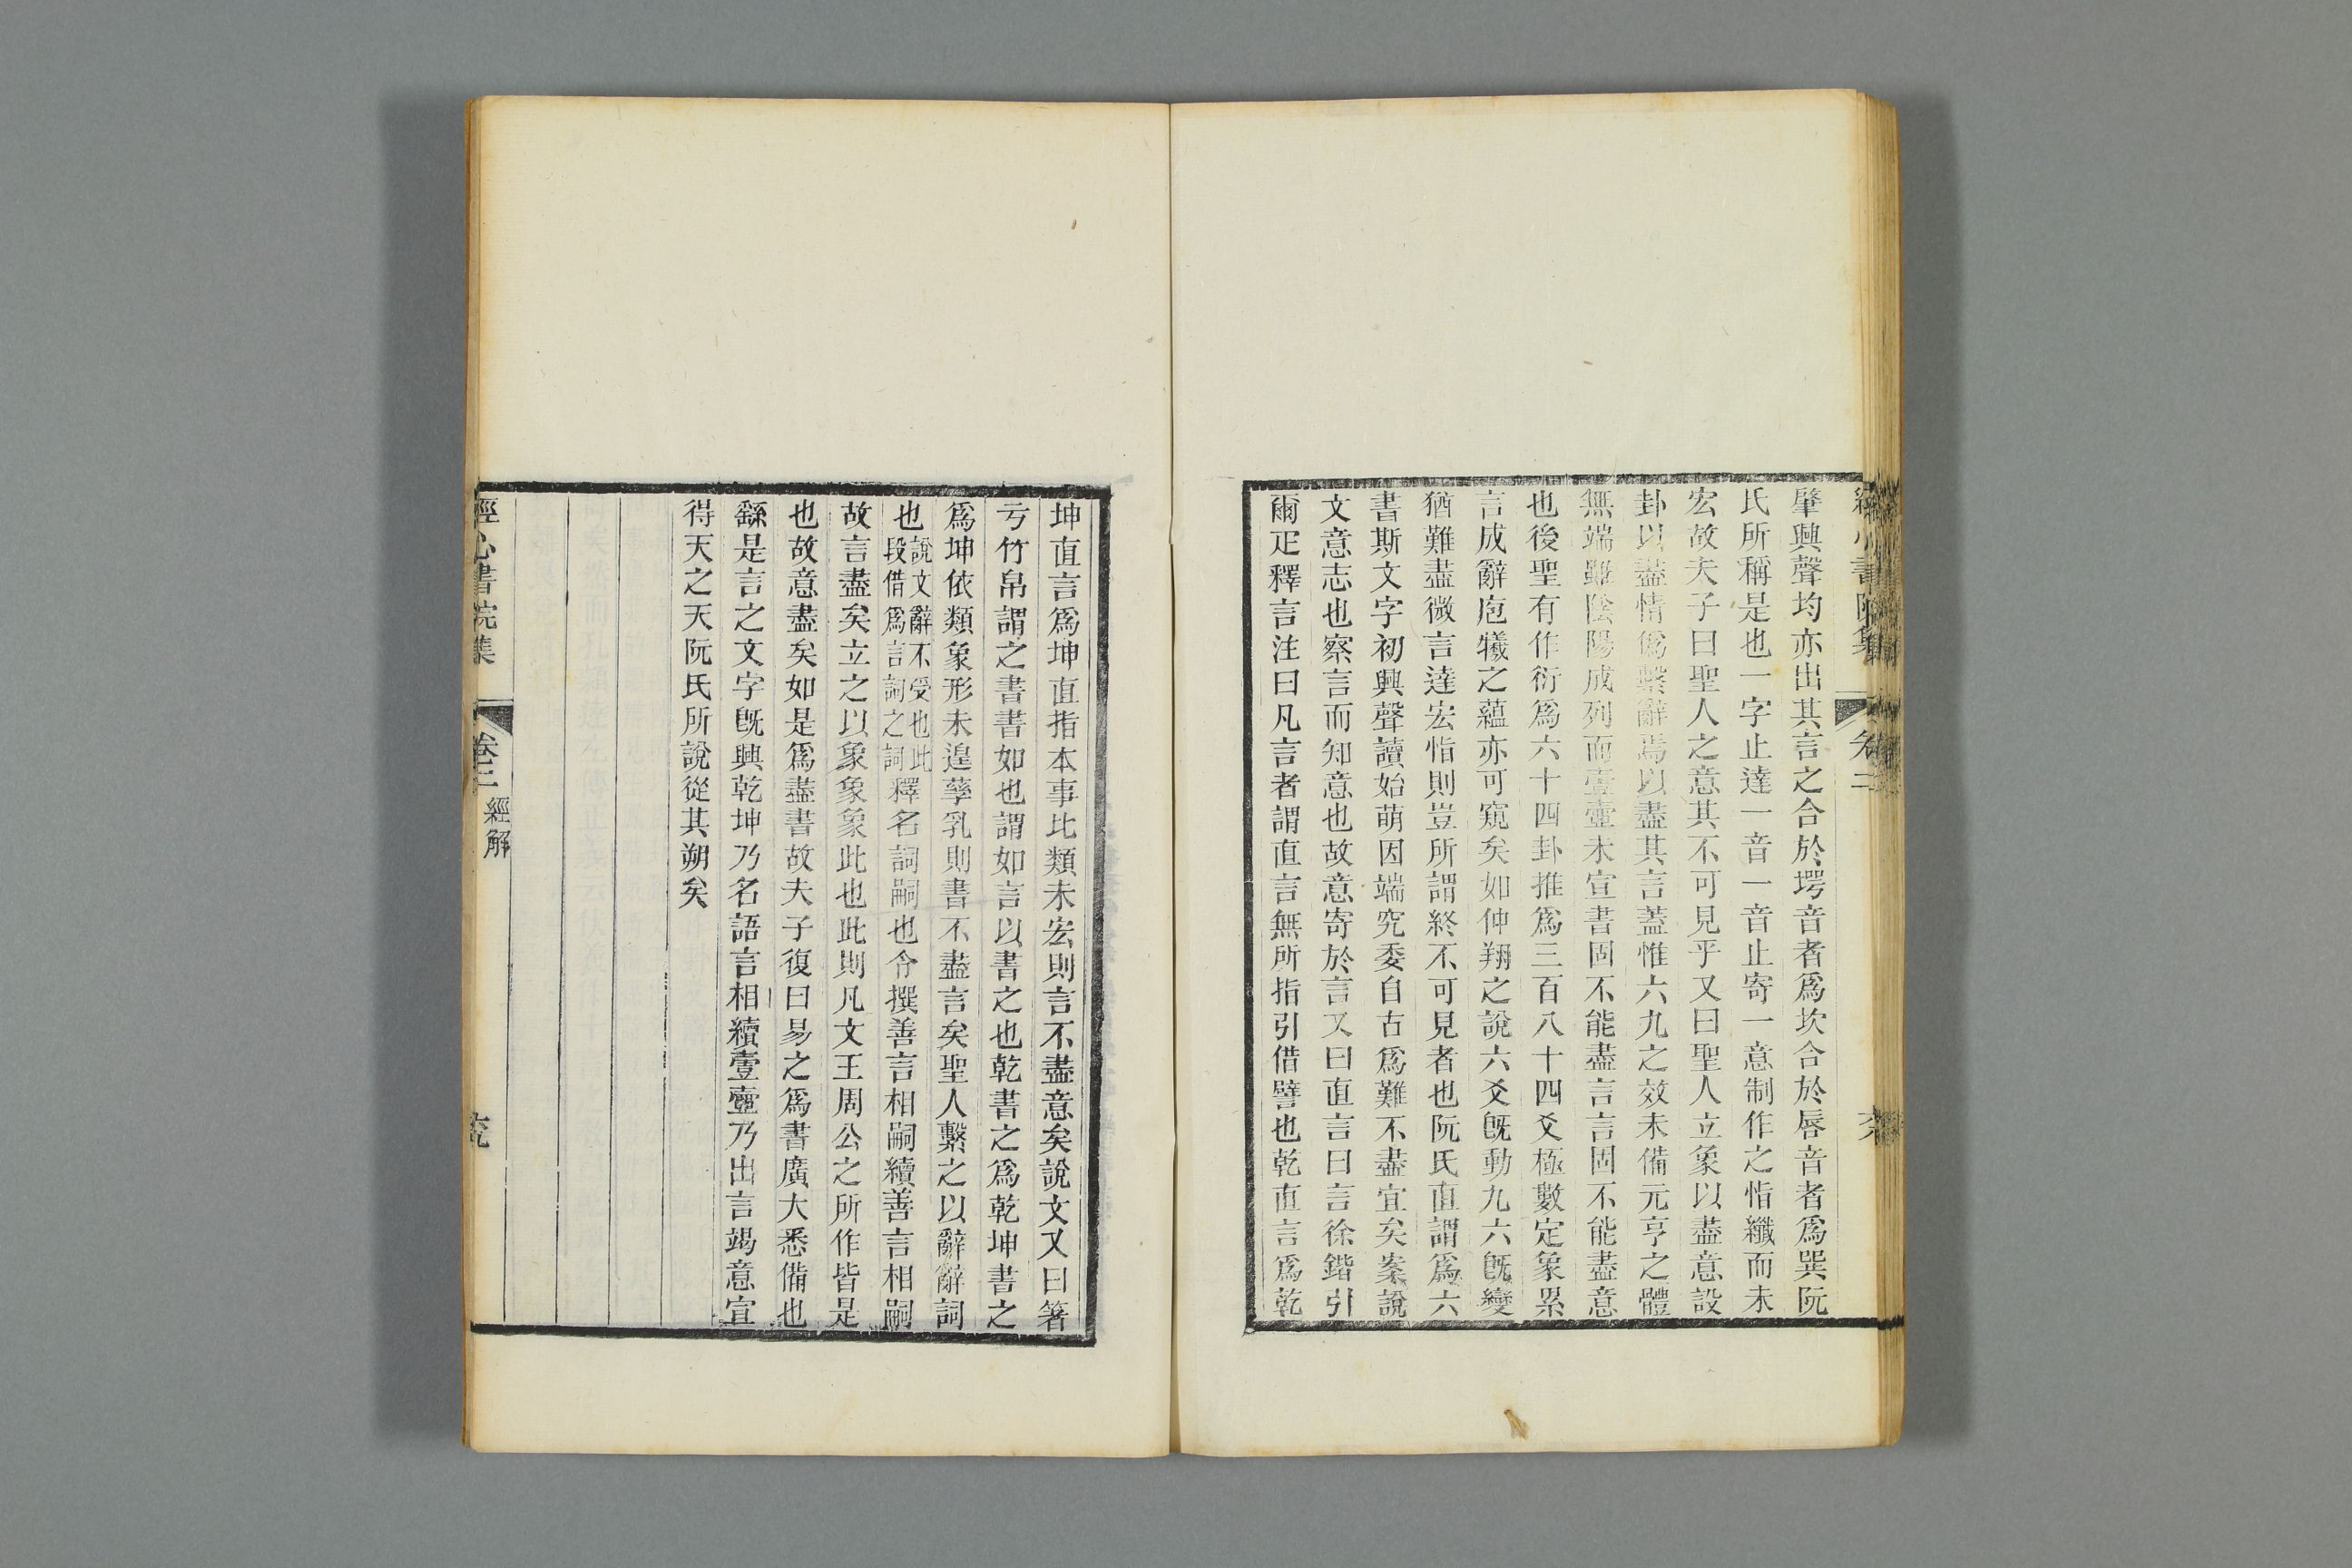 肇興聲均亦出其言之合於堮音者爲坎合於唇音者爲巽阮
氏所稱是也一字止達一音一音止寄一意制作之恉纖而未
宏故夫子曰聖人之意其不可見乎又曰聖人立象以盡意設
卦以盡情僞繫辭焉以盡其言蓋惟六九之效未備元亨之體
無端雖陰陽成列而壹壺未宣書固不能盡言言固不能盡意
也後聖有作衍爲六十四卦推爲三百八十四爻極數定象累
言成辭庖犧之蘊亦可窺矣如仲翔之說六爻旣動九六旣變
猶難盡微言達宏恉則豈所謂終不可見者也阮氏直謂爲六
書斯文字初興聲讀始萌因端究委自古爲難不盡宜矣案說
文意志也察言而知意也故意寄於言又曰直言曰言徐鍇引
爾疋釋言注曰凡言者謂直言無所指引借譬也乾直言爲乾
坤直言爲坤直指本事比類未宏則言不盡意矣說文又曰箸
亏竹帛謂之書書如也謂如言以書之也乾書之爲乾坤書之
爲坤依類象形未遑孳乳則書不盡言矣聖人繫之以辭辭詞
也說文辭不受也此段借爲言詞之詞釋名詞嗣也令撰善言相嗣續善言相嗣
故言盡矣立之以象象象此也此則凡文王周公之所作皆是
也故意盡矣如是爲盡書故夫子復曰易之爲書廣大悉備也
繇是言之文字旣興乾坤乃名語言相續壹壺乃出言竭意宣
得天之天阮氏所說從其朔矣
經心書院集
卷二
經解